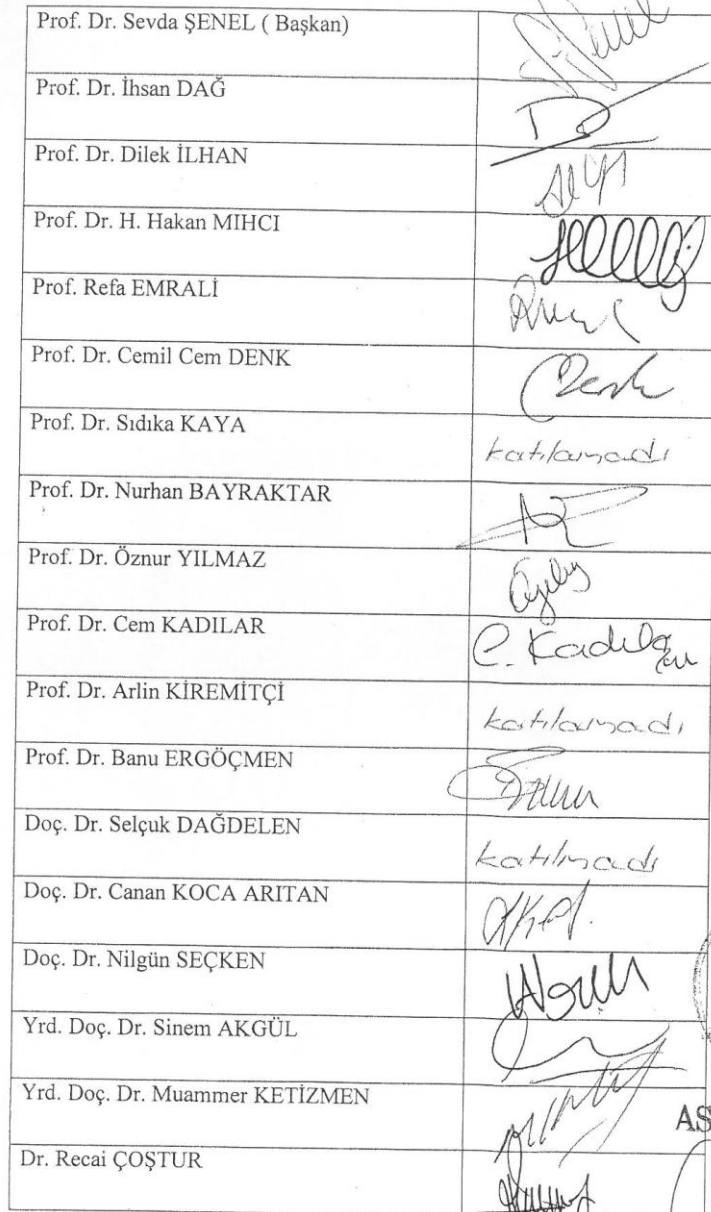 Prof. Dr. Sevda ŞENEL ( Başkan)
Prof. Dr. İhsan DAĞ
Prof. Dr. Dilek İLHAN
Prof. Dr. H. Hakan MIHCI
Prof. Refa EMRALİ
Prof. Dr. Cemil Cem DENK
Prof. Dr. Sıdıka KAYA katılamadı
Prof. Dr. Nurhan BAYRAKTAR
Prof. Dr. Öznur YILMAZ
Prof. Dr. Cem KADILAR C. Kadılar
Prof. Dr. Arlin KİREMİTÇİ katılamadı
Prof. Dr. Banu ERGÖÇMEN
Doç. Dr. Selçuk DAĞDELEN katılmadı
Doç. Dr. Canan KOCA ARITAN
Doç. Dr. Nilgün SEÇKEN
Yrd. Doç. Dr. Sinem AKGÜL
Yrd. Doç. Dr. Muammer KETİZMEN
AS
Dr. Recai ÇOŞTUR